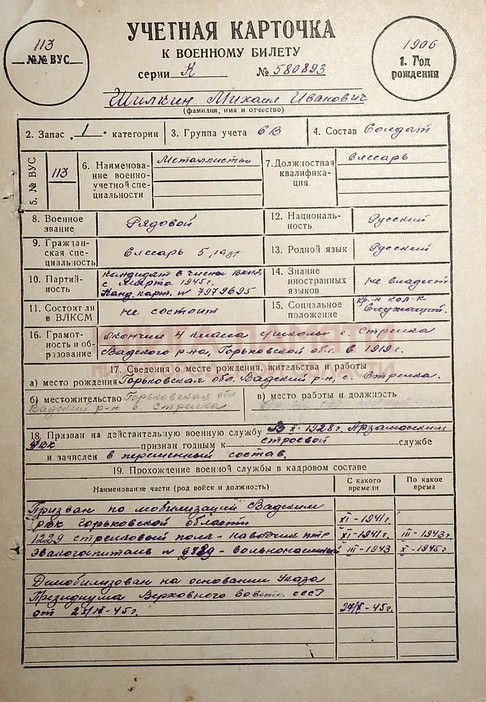 113
№№ ВУС
УЧЕТНАЯ КАРТОЧКА
К ВОЕННОМУ БИЛЕТУ
серии К № 580893
1906
1. Год
рождения
Шилкин Михаил Иванович
(фамилия, имя и отчество)
2. Запас 1 категории
3. Группа учета
4. Состав Солдат
5. № ВУС 113
6. Наименова-
ние военно-
учетной спе-
циальности
Металлисты
7. Должностная
квалификация
Слесарь
8. Военное
звание
Рядовой
12. Националь-
ность
Русский
9. Граждан-
ская спе-
циальность
Слесарь 5 разр
13. Родной язык
Русский
10. Партий-
ность
Кандидат в члены ВКП(б)
с Марта 1945 г.
Канд. карт. № 7979695
14. Знание
иностранных
языков
не владеет
11. Состоит ли
в ВЛКСМ
не состоит
15. Социальное
положение
Служащий
16. Грамот-
ность и об-
разование
Окончил 4 класса школы с. Стрелка
Вадского р-на, Горьковской обл. в 1919 г.
17. Сведения о месте рождения, жительства и работы
а) место рождения Горьковская обл. Вадский р-н, с. Стрелка
б) местожительство Горьковская обл
Вадский р-н с. Стрелка
в) место работы и должность
18. Призван на действительную военную службу В X-1928 г. Арзамасским
РВК признан годным к строевой службе
и зачислен в переменный состав.
19. Прохождение военной службы в кадровом составе
Наименование части (род войск и должность)
С какого
времени
По какое
время
Призван по мобилизации Вадским
рвк Горьковской области
XI-1941 г.
1229 стрелковый полк - наводчик птр
XI-1941 г. III-1943 г.
Эвакогоспиталь № 2989 - вольнонаемный
III-1943 X-1945 г.
Демобилизован на основании Указа
Президиума Верховного Совета СССР
от 25/IX-45 г.